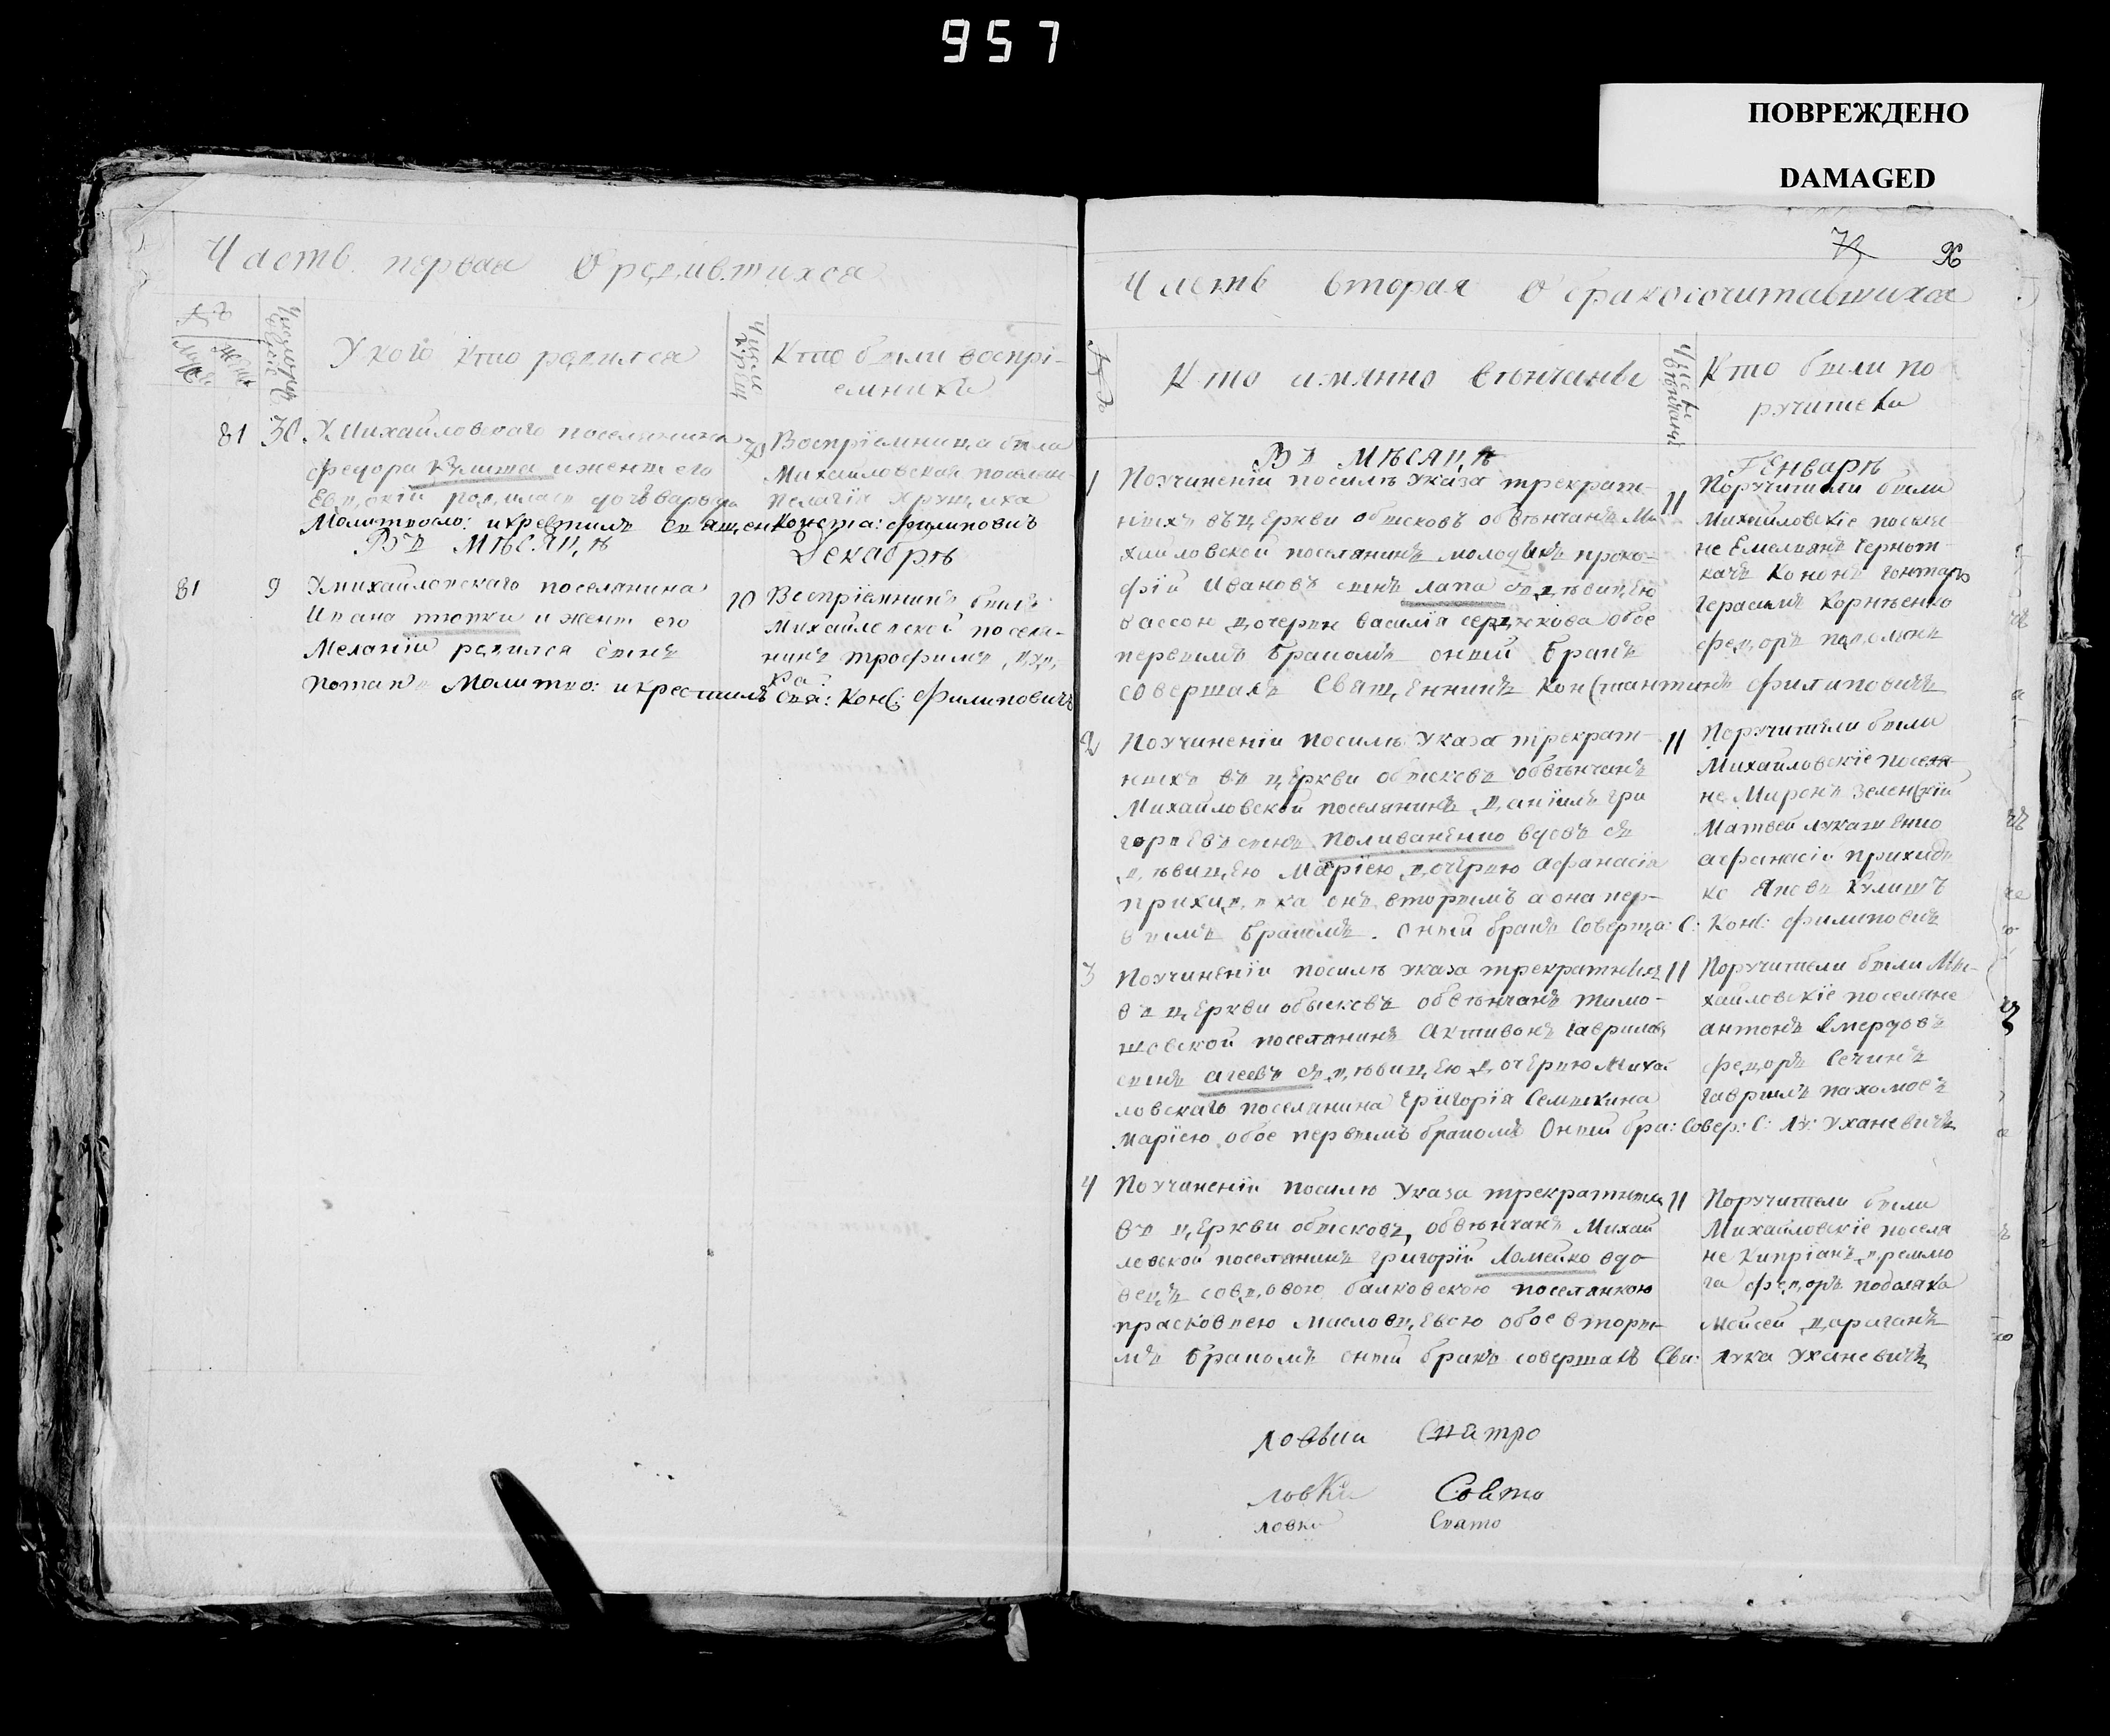 957
ПОВРЕЖДЕНО
DAMAGED
Часть первая О родившихся
№
Укого кто родился
Кто были воспрі-
емники
81 30 У Михайловскаго поселянина
федора Кулиша ижены его
родилась дочь Варвара
Молитвова: икрестилъ Священ
30 Воспріемница была
Михайловская поселян
Пелагія Хрущиха
Конста: филиповичъ
Въ Мѣсяцѣ Декабрѣ
81 9 У михайловскаго поселянина
Ивана ижены его
Меланіи родился сынъ
Потапъ Молитво: икрестилъ
10 Воспріемникъ былъ
Михайловской поселя-
нинъ трофимъ
Свя: Конс: Филиповичъ
96
Часть вторая О бракосочитавшихся
№
Кто имянно вѣнчаны
Число вѣнчаня
Кто были по
ручители
Въ Мѣсяцѣ Генварѣ
1 Поучиненіи посилѣ указа трекрат-
ныхъ въцеркви обысковъ обвѣнчанъ Ми
хайловской поселянинъ молодикъ проко-
фій Ивановъ сынъ лапа съдѣвицею
дочерью василія обое
первымъ бракомъ оный бракъ
совершалъ Священникъ Константинъ филиповичъ
11 Поручители были
Михайловскіе поселя
не Емельянъ Чернот
качъ Кононъ гонтарь
герасимъ Корнѣенко
федоръ
2 Поучиненіи посилѣ Указа трекрат-
ныхъ въ церкви обысковъ обвѣнчанъ
Михайловской поселянинъ Даніилъ гри
горьевъ сынъ Поливаненко вдовъ съ
дѣвицею Маріею дочерью афанасія
приходька онъ вторымъ а она пер-
вымъ бракомъ. Оный бракъ Соверша: С: Конс: филиповичъ
11 Поручители были
Михайловскіе поселя
не Миронъ Зеленскій
Матвей лукашенко
афанасій приходь
ко Яковъ Кулишъ
3 Поучиненіи посилѣ указа трекратныхъ
въ церкви обысковъ обвѣнчанъ тимо-
шовской поселянинъ Активонъ гаврилов
сынъ агеевъ съ дѣвицею дочерью Михай
ловскаго поселянина григорія Семыкина
маріею обое первымъ бракомъ Оный бра: Совер: С: Лу: Уханевичъ
11 Поручители были Ми-
хайловскіе поселяне
антонъ Смердовъ
федоръ Сечинъ
гаврилъ пахомовъ
4 Поучиненіи посилѣ Указа трекратныхъ
въ церкви обысковъ, обвѣнчанъ Михай
ловской поселянинъ григорій Ломейко вдо
вецъ совдовою балковскою поселянкою
прасковьею Масловцевою обое вторы-
мъ бракомъ оный бракъ совершалъ Свя: Лука Уханевичъ
11 Поручители были
Михайловскіе поселя
не Кипріанъ дремлю
га федоръ подоляка
Мойсей Дариганъ